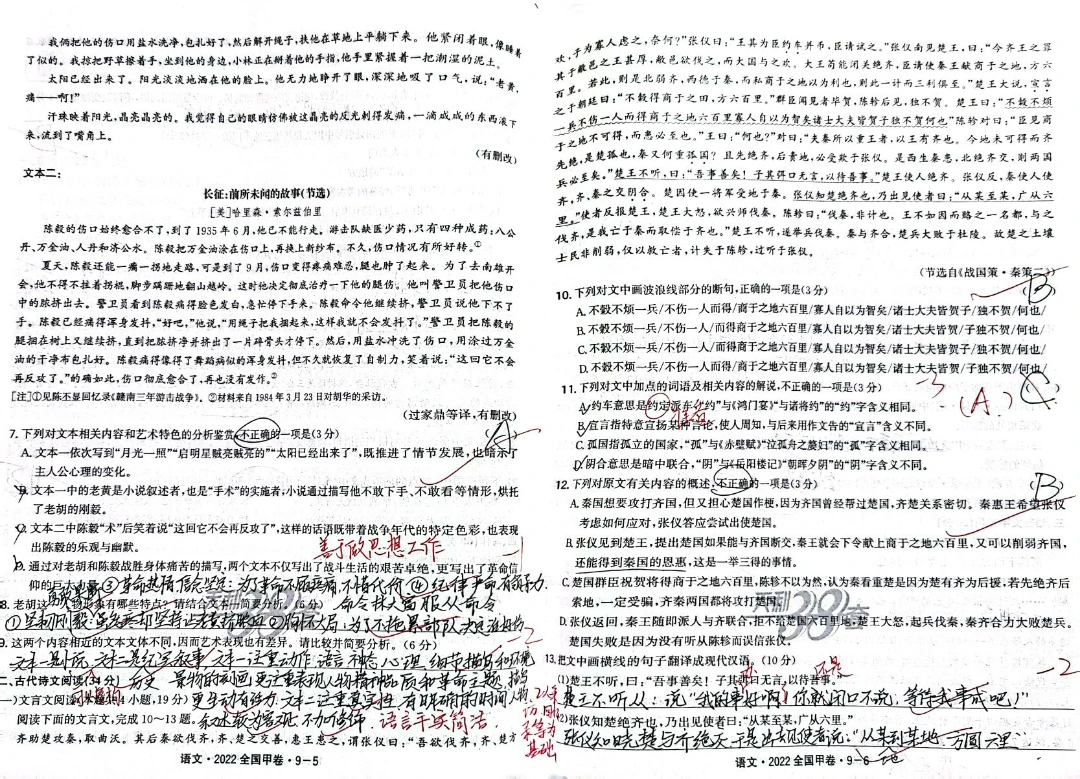 我俩把他的伤口用盐水洗净,包扎好了,然后解开绳子,扶他在草地上平躺下来。他紧闭着眼,像睡着
了似的。我捺把野草擦着手,坐到他的身边,小林正在掰着他的手指,他手里紧握着一把潮湿的泥土。
太阳已经出来了。阳光淡淡地洒在他的脸上。他无力地睁开了眼,深深地吸了口气,说:“老黄,
痛——啊!”
汗珠映着阳光,晶亮晶亮的。我觉得自己的眼睛仿佛被这晶亮的反光刺得发痛,一滴咸咸的东西滚下
来,流到了嘴角上。
(有删改)
文本二:
长征:前所未闻的故事(节选)
[美]哈里森·索尔兹伯里
陈毅的伤口始终愈合不了,到了1935年6月,他已不能行走。游击队缺医少药,只有四种成药:八公
丹、万金油、人丹和济公水。陈毅把万金油涂在伤口上,再换上新纱布。不久,伤口情况有所好转。①
夏天,陈毅还能一瘸一拐地走路,可是到了9月,伤口变得疼痛难忍,腿也肿了起来。为了去南雄开
会,他不得不拄着拐棍,脚步蹒跚地翻山越岭。这时他决定彻底治疗一下他的腿伤。他叫警卫员把他伤口
中的脓挤出去。警卫员看到陈毅痛得脸色发白,急忙停下手来。陈毅命令他继续挤,警卫员说他下不了
手。陈毅已经痛得浑身发抖,“好吧,”他说,“用绳子把我捆起来,这样我就不会发抖了。”警卫员把陈毅的
腿捆在树上又继续挤,直到把脓挤净并挤出了一片碎骨头才停下。然后,用盐水冲洗了伤口,用涂过万金
油的干净布包扎好。陈毅痛得像得了舞蹈病似的浑身发抖,但不久就恢复了自制力,笑着说:“这回它不会
再反攻了。”的确如此,伤口彻底愈合了,再也没有发作。②
[注]①见陈丕显回忆录《赣南三年游击战争》。②材料来自1984年3月23日对胡华的采访。
(过家鼎等译,有删改)
7. 下列对文本相关内容和艺术特色的分析鉴赏,不正确的一项是(3分) A
A. 文本一依次写到“月光一照”“启明星贼亮贼亮的”“太阳已经出来了”,既推进了情节发展,也暗示了
主人公心理的变化。
B. 文本一中的老黄是小说叙述者,也是“手术”的实施者;小说通过描写他不敢下手、不敢看等情形,烘托
了老胡的刚毅。
C. 文本二中陈毅“术”后笑着说“这回它不会再反攻了”,这样的话语既带着战争年代的特定色彩,也表现
出陈毅的乐观与幽默。
善于做思想工作
D. 通过对老胡和陈毅战胜身体痛苦的描写,两个文本不仅写出了战斗生活的艰苦卓绝,更写出了革命信
仰的巨大力量。
③革命热情信念坚定:为革命不顾疼痛不惜代价 ④纪律严命有领导力
8. 老胡这一人物形象有哪些特点?请结合文本一简要分析。(6分) 命令林大富服从命令
①坚韧刚毅:虽然 ②顾全大局:为了不拖累部队决定
9. 这两个内容相近的文本文体不同,因而艺术表现也有差异。请比较并简要分析。(6分)
文本一是小说,文本二是纪实叙事,文本一注重动作、语言神态心理、细节描写和环境
二、古代诗文阅读(34分)
景物的刻画,更注重表现人物精神品质和革命主题,
(一)文言文阅读(本题共4小题,19分)
更生动有活力。文本二注重真实性,有明确的时间人物,
阅读下面的文言文,完成10~13题。
叙述较为客观,不加修饰,语言平实简洁。
齐助楚攻秦,取曲沃。其后秦欲伐齐,齐、楚之交善,惠王患之,谓张仪曰:“吾欲伐齐,齐、楚方
语文·2022全国甲卷·9-5
欢,子为寡人虑之,奈何?”张仪曰:“王其为臣约车并币,臣请试之。”张仪南见楚王,曰:“今齐王之罪
其于敝邑之王甚厚,敝邑欲伐之,而大国与之欢。大王苟能闭关绝齐,臣请使秦王献商于之地,方六
百里。若此,则是北弱齐,西德于秦,而私商于之地以为利也,则此一计而三利俱至。”楚王大说,宣言
之于朝廷曰:“不榖得商于之田,方六百里。”群臣闻见者毕贺,陈轸后见,独不贺。楚王曰:“不榖不烦
一兵不伤一人而得商于之地六百里寡人自以为智矣诸士大夫皆贺子独不贺何也”陈轸对曰:“臣见商
于之地不可得,而患必至也。”王曰:“何也?”对曰:“夫秦所以重王者,以王有齐也。今地未可得而齐
先绝,是楚孤也,秦又何重孤国?且先绝齐,后责地,必受欺于张仪。是西生秦患,北绝齐交,则两国
兵必至矣。”楚王不听,曰:“吾事善矣!子其弭口无言,以待吾事。”楚王使人绝齐。张仪反,秦使人使
齐,齐、秦之交阴合。楚因使一将军受地于秦。张仪知楚绝齐也,乃出见使者曰:“从某至某,广从六
里。”使者反报楚王,楚王大怒,欲兴师伐秦。陈轸曰:“伐秦,非计也。王不如因而赂之一名都,与之
伐齐,是我亡于秦而取偿于齐也。”楚王不听,遂举兵伐秦。秦与齐合,楚兵大败于杜陵。故楚之土壤
士民非削弱,仅以救亡者,计失于陈轸,过听于张仪。
(节选自《战国策·秦策二》)
10. 下列对文中画波浪线部分的断句,正确的一项是(3分) B
A. 不榖不烦一兵/不伤一人/而得商于之地六百里/寡人自以为智矣/诸士大夫皆贺子/独不贺/何也/
B. 不榖不烦一兵/不伤一人/而得商于之地六百里/寡人自以为智矣/诸士大夫皆贺/子独不贺/何也/
C. 不榖不烦一兵/不伤一人/而得商于之地六百里/寡人自以为智矣/诸士大夫皆贺子/独不贺/何也/
D. 不榖不烦一兵/不伤一人/而得商于之地六百里/寡人自以为智矣/诸士大夫皆贺/子独不贺/何也/
11. 下列对文中加点的词语及相关内容的解说,不正确的一项是(3分) -3 (A) C
A. 约车意思是约定派车,“约”与《鸿门宴》“与诸将约”的“约”字含义相同。
准备
B. 宣言指特意宣扬某种言论,使人周知,与后来用作文告的“宣言”含义不同。
C. 孤国指孤立的国家,“孤”与《赤壁赋》“泣孤舟之嫠妇”的“孤”字含义相同。
D. 阴合意思是暗中联合,“阴”与《岳阳楼记》“朝晖夕阴”的“阴”字含义不同。
12. 下列对原文有关内容的概述,不正确的一项是(3分) B
A. 秦国想要攻打齐国,但又担心楚国作梗,因为齐国曾经帮过楚国,齐楚关系密切。秦惠王希望张仪
考虑如何应对,张仪答应尝试出使楚国。
B. 张仪见到楚王,提出楚国如果能与齐国断交,秦王就会下令献上商于之地六百里,又可以削弱齐国,
还能得到秦国的恩惠,这是一举三得的事情。
C. 楚国群臣祝贺将得商于之地六百里,陈轸不以为然,认为秦看重楚是因为楚有齐为后援,若先绝齐后
索地,一定受骗,齐秦两国都将攻打楚国。
D. 张仪返回,秦王随即派人与齐联合,拒不给楚国六百里地,楚王大怒,起兵伐秦,秦齐合力大败楚兵。
楚国失败是因为没有听从陈轸而误信张仪。
13. 把文中画横线的句子翻译成现代汉语。(10分) -2
(1)楚王不听,曰:“吾事善矣!子其弭口无言,以待吾事。”
楚王不听从:说“我的事好啊!你就闭口不说,等待我事成吧!”
(2)张仪知楚绝齐也,乃出见使者曰:“从某至某,广从六里。”
张仪知晓楚与齐绝交,于是出现使者说:“从某到某地,方圆六里”
语文·2022全国甲卷·9-6